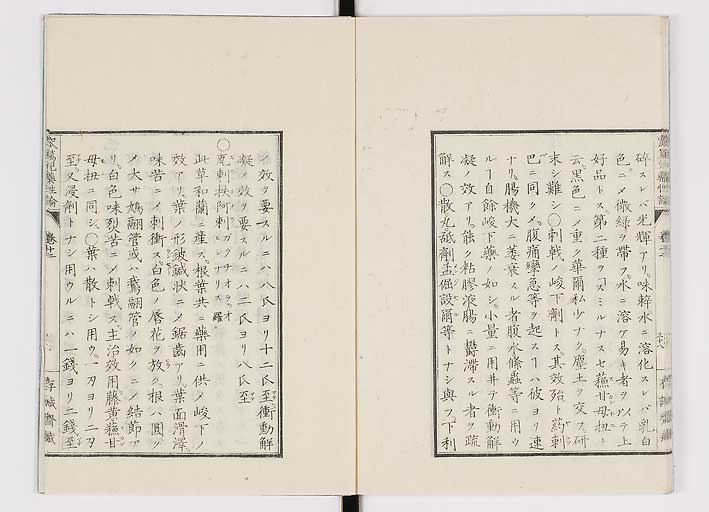 碎スレバ光輝アリ。味粹水ニ溶化スレバ乳白
色ニメ微緑ヲ帶フ。水ニ溶ケ易キ者ヲ以テ上
好品トス。第二種ヲ「スミルナスセ蘓甘母扭ト
云。黒色ニメ重ク華爾私少ナク。塵土ヲ交ス。研
末シ難シ○刺戟ノ峻下劑トス。其效殆ト葯刺
巴ニ同クメ。腹痛攣急等ヲ起スヿハ彼ヨリ速
ナリ。腸機大ニ萎衰スル者腹水絛蟲等ニ用ウ
ルヿ自餘峻下藥ノ如シ。小量ニ用井テ衝動解
凝ノ效アリ。能ク粘膠液腸ニ欝滯スル者ヲ疏
解ス○散丸舐劑
等トナシ與フ。下利
ノ效ヲ要スルニハ八氏ヨリ十二氏至衝動解
凝ノ效ヲ要スルニハ二氏ヨリ八氏至
此草和蘭ニ産ス。根葉共ニ藥用ニ供メ峻下ノ
效アリ。葉ノ形鈹鍼状ニメ鋸齒アリ。葉面滑澤。
味苦ニメ刺衝ス。白色ノ唇花ヲ放ク。根ハ圓ク
メ大サ鳩翮管或ハ鵞翮管ノ如クニメ結節ア
リ。白色味烈苦ニメ刺戟ス。主治效用藤黄蘓甘
母扭ニ同シ。○葉ハ散トシ用ウ。一刄ヨリ二刄
至又浸劑トナシ用ウルニハ一錢ヨリ二錢至